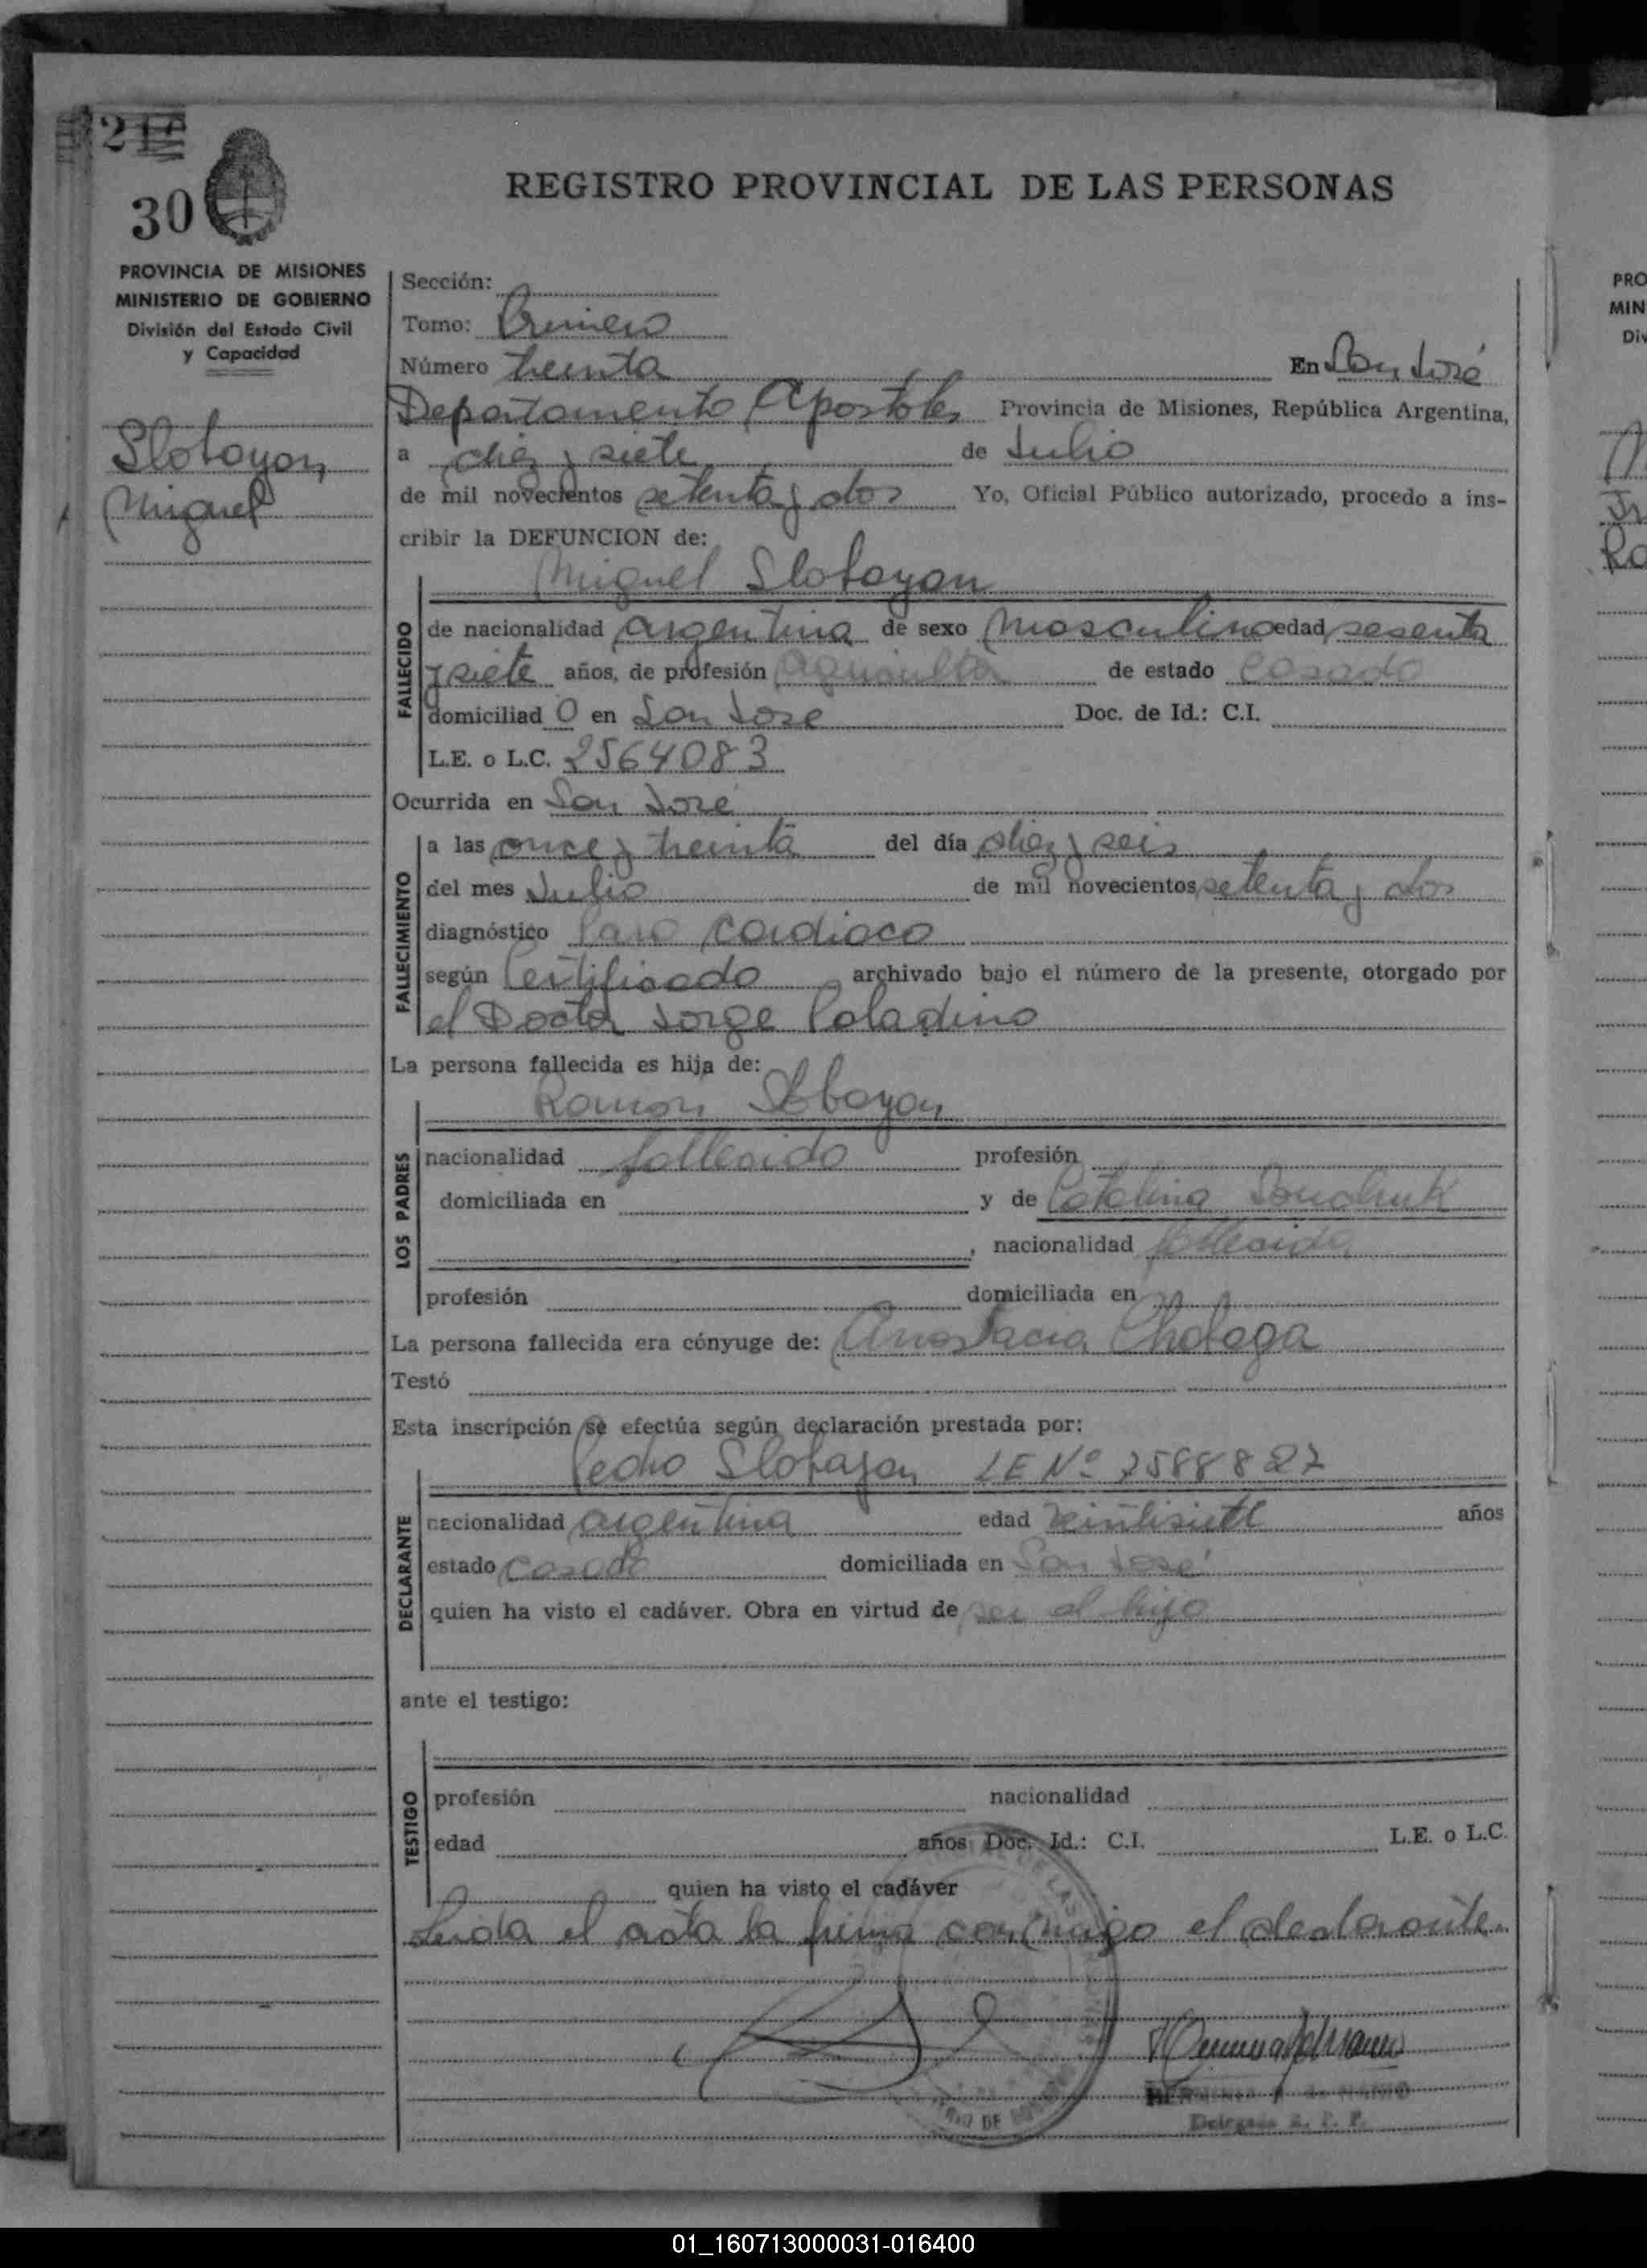 30
REGISTRO PROVINCIAL DE LAS PERSONAS
PROVINCIA DE MISIONES
MINISTERIO DE GOBIERNO
División del Estado Civil
y Capacidad
Slobayan
Miguel
Sección:
Tomo: Primero
Número treinta En San José
Departamento Apostoles Provincia de Misiones, República Argentina,
a diez y siete de Julio
de mil novecientos setenta y dos Yo, Oficial Público autorizado, procedo a ins-
cribir la DEFUNCION de:
Miguel Slobayan
FALLECIDO
de nacionalidad argentina de sexo masculino edad sesenta
y siete años, de profesión agricultor de estado casado
domiciliad o en San José Doc. de Id.: C.I.
L.E. o L.C. 2564083
Ocurrida en San José
FALLECIMIENTO
a las once y treinta del día diez y seis
del mes Julio de mil novecientos setenta y dos
diagnóstico Paro Cardiaco
según Certificado archivado bajo el número de la presente, otorgado por
el Doctor Jorge Paladino
La persona fallecida es hija de:
Ramon Slobayan
LOS PADRES
nacionalidad fallecido profesión
domiciliada en y de Catalina
, nacionalidad fallecida
profesión domiciliada en
La persona fallecida era cónyuge de: Anastacia
Testó
Esta inscripción se efectúa según declaración prestada por:
Pedro Slobayan LE Nº 7588827
DECLARANTE
nacionalidad argentina edad veintisiete años
estado casado domiciliada en San José
quien ha visto el cadáver. Obra en virtud de ser el hijo
ante el testigo:
TESTIGO
profesión nacionalidad
edad años Doc. Id.: C.I. L.E. o L.C.
quien ha visto el cadáver
Leida el acta la firma conmigo el declarante
PRO
MIN
Div
01_160713000031-016400